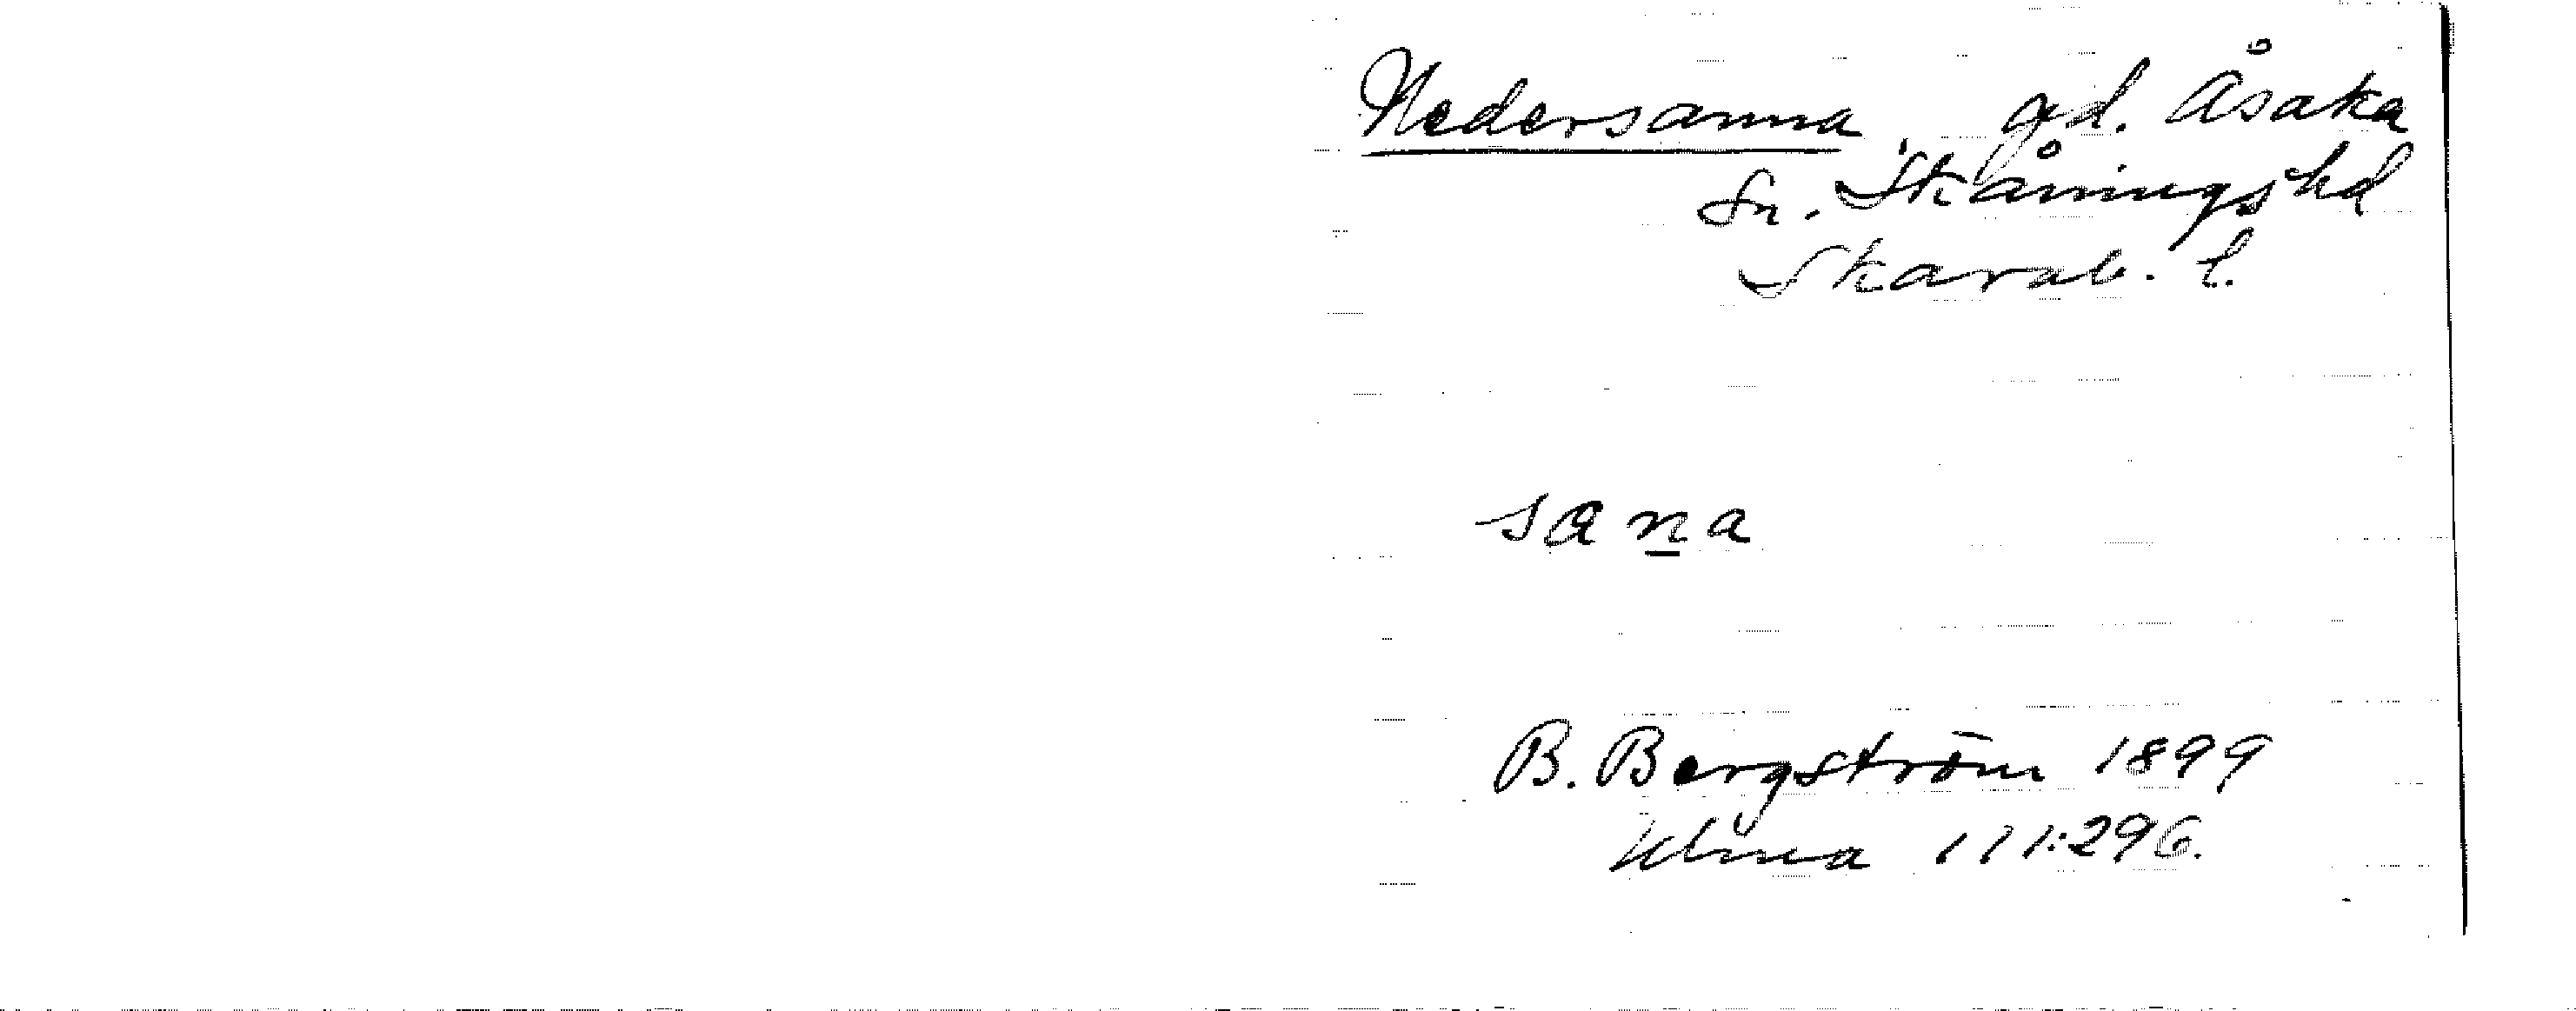 Nedersanna gd. Åsaka
sn. Skånings hd
Skarab. l.
sana
B. Bergström 1899
111:296.